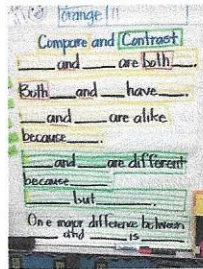 orange
Compare and Contrast
____ and ____ are both ____.
Both ____ and ____ have ____.
____ and ____ are alike
because ____.
____ and ____ are different
because ____
____ but ____.
One major difference between
____ and ____ is ____.